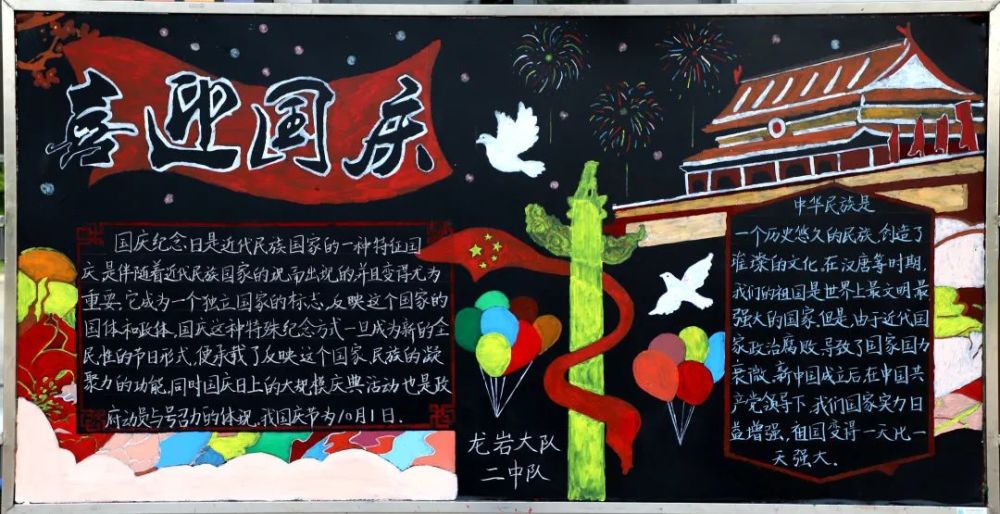 喜迎国庆
国庆纪念日是近代民族国家的一种特征国
庆,是伴随着近代民族国家的视而出现,的并且变得尤为
重要。它成为一个独立国家的标志,反映这个国家的
国体和政体,国庆这种特殊纪念方式一旦成为新的全
民性的节日形式,便承载了反映这个国家,民族的凝
聚力的功能,同时国庆日上的大规模庆典活动也是政
府动员与号召力的体现,我国庆节为10月1日.
龙岩大队
二中队
中华民族是
一个历史悠久的民族,创造了
璀璨的文化,在汉唐等时期,
我们的祖国是世界上最文明最
强大的国家,但是,由于近代国
家政治腐败,导致了国家国力
衰微,新中国成立后,在中国共
产党领导下,我们国家实力日
益增强,祖国变得一天比一
天强大.